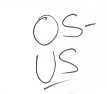 OS-
US